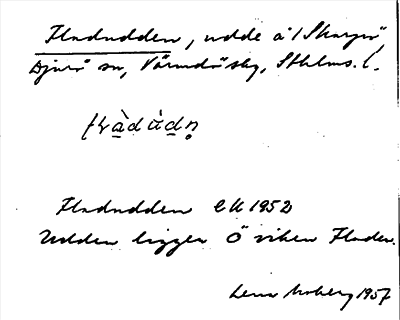 Fladudden, udde å / Skarpö,
Djurö sn, Värmdö sky, Sthlms. l.
Fladudden EK 1952
Udden ligger Ö viken Fladen.
Lena Moberg 1957